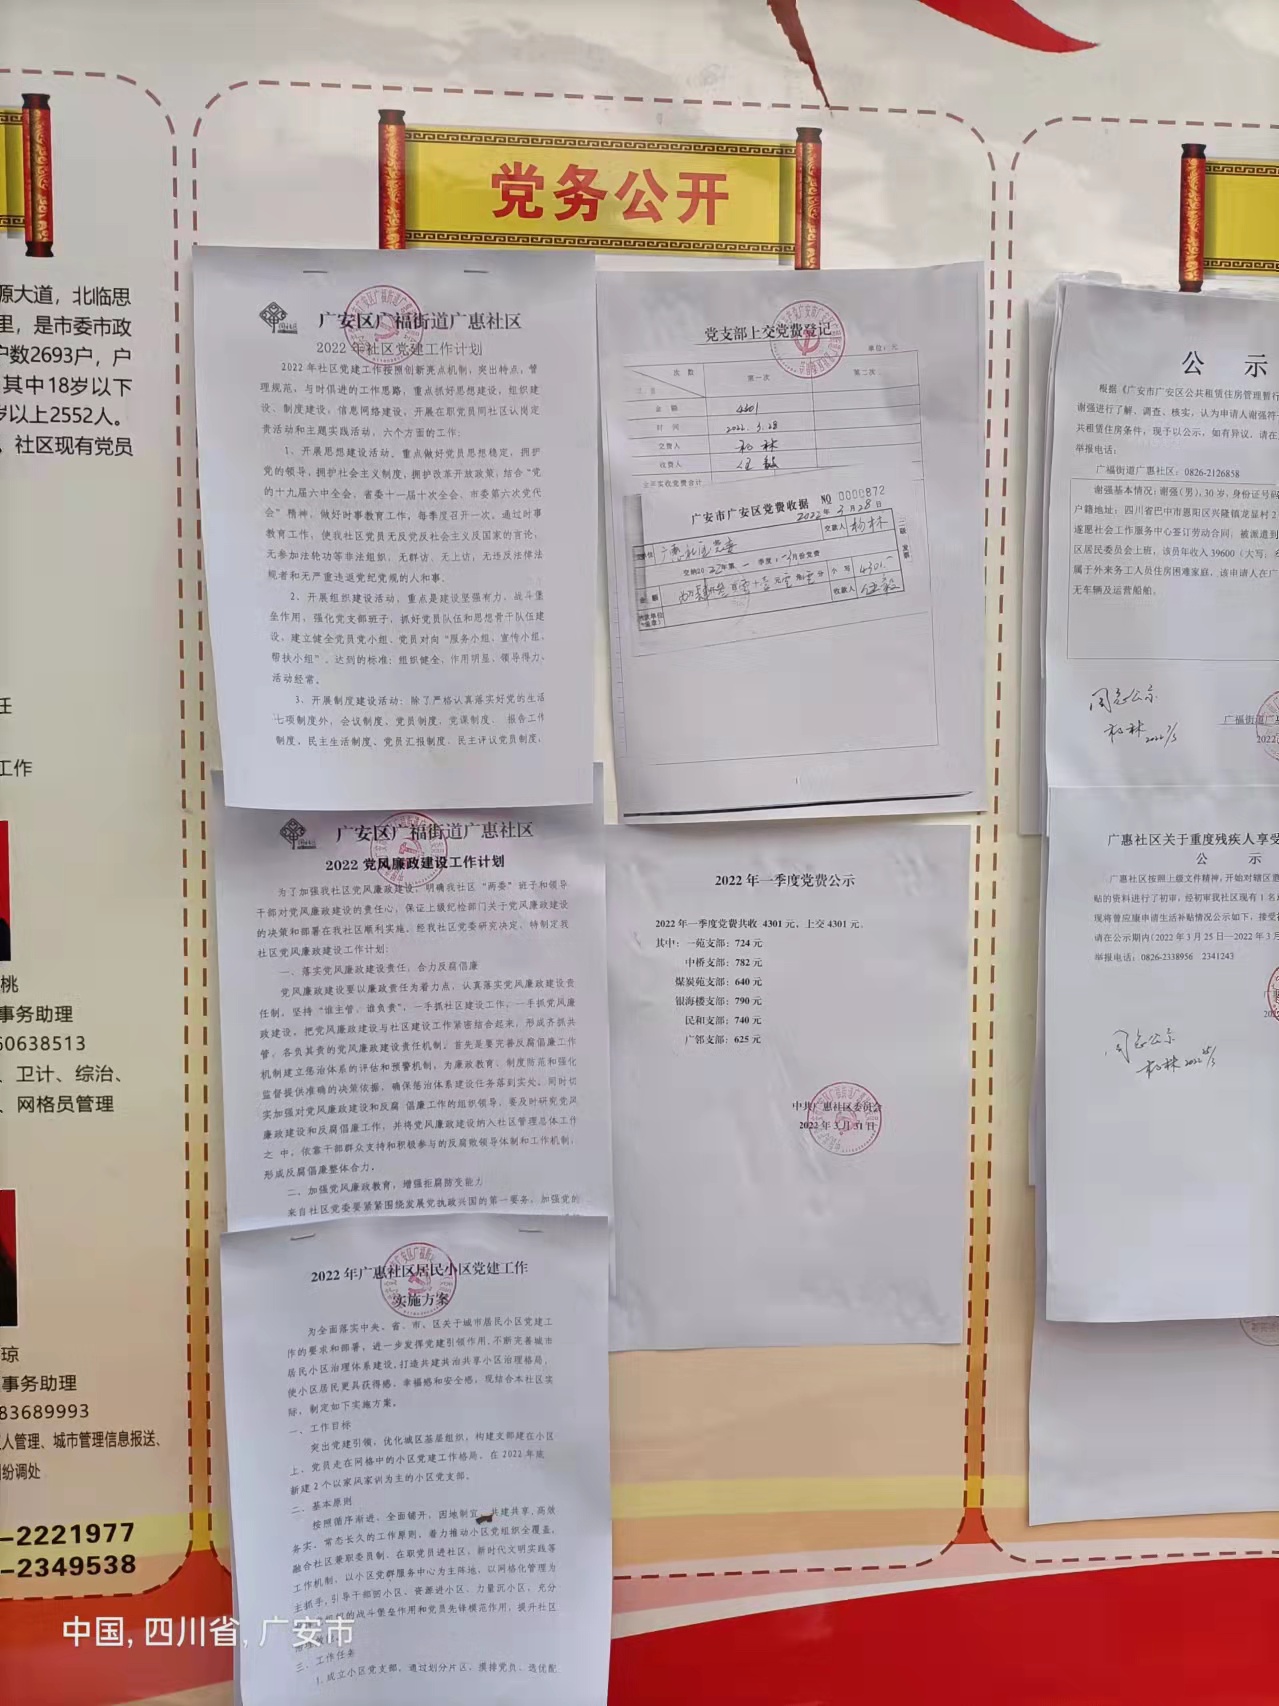 党务公开
源大道，北临思
里，是市委市政
户数2693户，户
其中18岁以下
岁以上2552人。
，社区现有党员
任
工作
桃
事务助理
60638513
、卫计、综治、
、网格员管理
琼
事务助理
83689993
人管理、城市管理信息报送、
纷调处
-2221977
-2349538
广安区广福街道广惠社区
2022年社区党建工作计划
2022年社区党建工作按照创新亮点机制，突出特点，管
理规范，与时俱进的工作思路，重点抓好思想建设，组织建
设、制度建设，信息网络建设，开展在职党员同社区认岗定
责活动和主题实践活动，六个方面的工作：
1、开展思想建设活动。重点做好党员思想稳定，拥护
党的领导，拥护社会主义制度，拥护改革开放政策，结合“党
的十九届六中全会，省委十一届十次全会、市委第六次党代
会”精神，做好时事教育工作，每季度召开一次。通过时事
教育工作，使我社区党员无反党反社会主义及国家的言论，
无参加法轮功等非法组织，无群访、无上访，无违反法律法
规者和无严重违退党纪党规的人和事。
2、开展组织建设活动，重点是建设坚强有力，战斗堡
垒作用，强化党支部班子，抓好党员队伍和思想骨干队伍建
设，建立健全党员党小组、党员对向“服务小组、宣传小组、
帮扶小组”。达到的标准：组织健全，作用明显、领导得力、
活动经常。
3、开展制度建设活动：除了严格认真落实好党的生活
七项制度外，会议制度、党员制度，党课制度、报告工作
制度，民主生活制度、党员汇报制度、民主评议党员制度，
党支部上交党费登记
单位：元
次数
第一次
第二次
金额
4301
时间
2022.3.28
交费人
杨林
收费人
全年实收党费合计
广安市广安区党费收据 NO 0000872
2022年3月28日
交款人 杨林
交纳2022年第一季度1-3月份党费
金额
小写 4301.—
收款人
广安区广福街道广惠社区
2022党风廉政建设工作计划
为了加强我社区党风廉政建设，明确我社区“两委”班子和领导
干部对党风廉政建设的责任心，保证上级纪检部门关于党风廉政建设
的决策和部署在我社区顺利实施。经我社区党委研究决定，特制定我
社区党风廉政建设工作计划：
一、落实党风廉政建设责任，合力反腐倡廉
党风廉政建设要以廉政责任为着力点，认真落实党风廉政建设责
任制，坚持“谁主管，谁负责”，一手抓社区建设工作，一手抓党风廉
政建设，把党风廉政建设与社区建设工作紧密结合起来，形成齐抓共
管，各负其责的党风廉政建设责任机制。首先是要完善反腐倡廉工作
机制建立惩治体系的评估和预警机制，为廉政教育、制度防范和强化
监督提供准确的决策依据，确保惩治体系建设任务落到实处。同时切
实加强对党风廉政建设和反腐 倡廉工作的组织领导，要及时研究党风
廉政建设和反腐倡廉工作，并将党风廉政建设纳入社区管理总体工作
之 中，依靠干部群众支持和积极参与的反腐败领导体制和工作机制，
形成反腐倡廉整体合力。
二、加强党风廉政教育，增强拒腐防变能力
来自社区党委要紧紧围绕发展党执政兴国的第一要务，加强党的
2022年一季度党费公示
2022年一季度党费共收 4301元，上交4301元。
其中：一苑支部：724元
中桥支部：782元
煤炭苑支部：640元
银海楼支部：790元
民和支部：740元
广邻支部：625元
中共广惠社区委员会
2022年3月31日
2022年广惠社区居民小区党建工作
实施方案
为全面落实中央、省、市、区关于城市居民小区党建工
作的要求和部署，进一步发挥党建引领作用，不断完善城市
居民小区治理体系建设，打造共建共治共享小区治理格局，
使小区居民更具获得感、幸福感和安全感，现结合本社区实
际，制定如下实施方案。
一、工作目标
突出党建引领，优化城区基层组织，构建支部建在小区
上、党员走在网格中的小区党建工作格局，在2022年底
新建2个以家风家训为主的小区党支部。
二、基本原则
按照循序渐进，全面铺开，因地制宜，共建共享，高效
务实、常态长久的工作原则，着力推动小区党组织全覆盖，
融合社区兼职委员制、在职党员进社区、新时代文明实践等
工作机制，以小区党群服务中心为主阵地，以网格化管理为
主抓手，引导干部回小区、资源进小区、力量沉小区，充分
的战斗堡垒作用和党员先锋模范作用，提升社区
三、工作任务
1.成立小区党支部。通过划分片区、摸排党员、选优配
公 示
根据《广安市广安区公共租赁住房管理暂行
谢强进行了解、调查、核实，认为申请人谢强符
共租赁住房条件，现予以公示，如有异议，请在
举报电话：
广福街道广惠社区：0826-2126858
谢强基本情况：谢强（男），30岁，身份证号码
户籍地址：四川省巴中市恩阳区兴隆镇龙显村2
遂愿社会工作服务中心签订劳动合同，被派遣到
区居民委员会上班，该员年收入39600（大写：
属于外来务工人员住房困难家庭，该申请人在广
无车辆及运营船舶。
同意公示
杨林
广福街道广
广惠社区关于重度残疾人享受
公 示
广惠社区按照上级文件精神，开始对辖区患
贴的资料进行了初审，经初审我社区现有1名
现将曾应康申请生活补贴情况公示如下，接受
请在公示期内（2022年3月25日—2022年3月
举报电话：0826-2338956 2341243
同意公示
杨林
中国，四川省，广安市